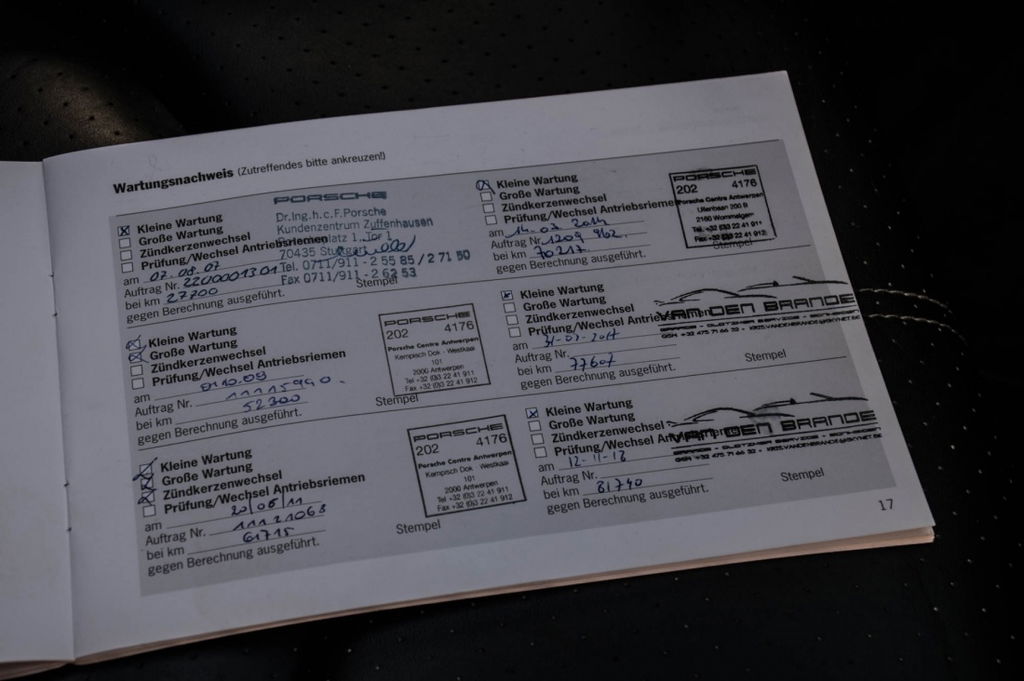 Wartungsnachweis (Zutreffendes bitte ankreuzen!)
Kleine Wartung
Große Wartung
Zündkerzenwechsel
Prüfung/Wechsel Antriebsriemen
am 07.08.07
Auftrag Nr. 2200001301
bei km 27700
gegen Berechnung ausgeführt.
PORSCHE
Dr.Ing.h.c.F.Porsche
Kundenzentrum Zuffenhausen
platz 1, Tor 1
20435 Stuttgart
Tel. 0711/911 - 2 55 85 / 2 71 50
Fax 0711/911 - 2 63 53
Stempel
Kleine Wartung
Große Wartung
Zündkerzenwechsel
Prüfung/Wechsel Antriebsriemen
am 01.10.09
Auftrag Nr. 11115990.
bei km 52300
gegen Berechnung ausgeführt.
PORSCHE
202 4176
Porsche Centre Antwerpen
Kempisch Dok - Westkaai
101
2000 Antwerpen
Tel +32 (0)3 22 41 911
Fax +32 (0)3 22 41 912
Stempel
Kleine Wartung
Große Wartung
Zündkerzenwechsel
Prüfung/Wechsel Antriebsriemen
am 20/06/11
Auftrag Nr. 11121063
bei km 61715
gegen Berechnung ausgeführt.
PORSCHE
202 4176
Porsche Centre Antwerpen
Kempisch Dok - Westkaai
101
2000 Antwerpen
Tel +32 (0)3 22 41 911
Fax +32 (0)3 22 41 912
Stempel
Kleine Wartung
Große Wartung
Zündkerzenwechsel
Prüfung/Wechsel Antriebsriemen
am 14.07.2014
Auftrag Nr. 1209 962.
bei km 70217
gegen Berechnung ausgeführt.
PORSCHE
202 4176
Porsche Centre Antwerpen
2160 Wommelgem
Tel +32 (0)3 22 41 911
Fax +32 (0)3 22 41 912
Stempel
Kleine Wartung
Große Wartung
Zündkerzenwechsel
Prüfung/Wechsel Antriebsriemen
am 31-07-2017
Auftrag Nr.
bei km 77607
gegen Berechnung ausgeführt.
VAN DEN BRANDE
GSM +32 475 71 66 32 - KRIS.VANDENBRANDE@SKYNET.BE
Stempel
Kleine Wartung
Große Wartung
Zündkerzenwechsel
Prüfung/Wechsel Antriebsriemen
am 12-11-18
Auftrag Nr.
bei km 81740
gegen Berechnung ausgeführt.
VAN DEN BRANDE
GSM +32 475 71 66 32 - KRIS.VANDENBRANDE@SKYNET.BE
Stempel
17